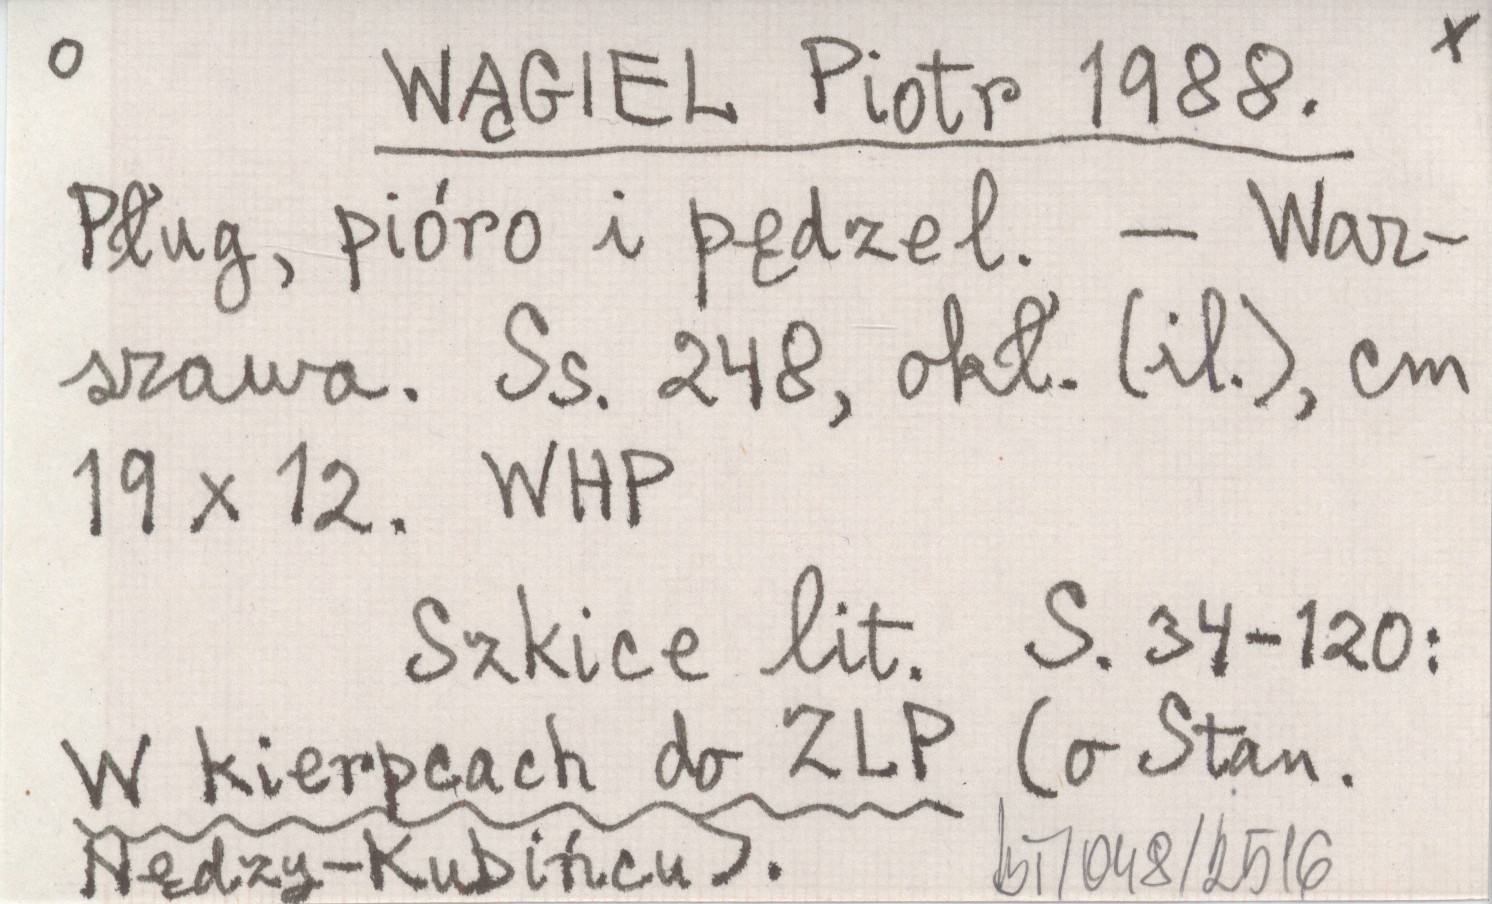 o WĄGIEL Piotr 1988. x
Pług, pióro i pędzel. – War-
szawa. Ss. 248, okł. (il.), cm
19 x 12. WHP
Szkice lit. S. 34-120:
W kierpcach do ZLP (o Stan.
Nędzy-Kubińcu).
bT/048/2516